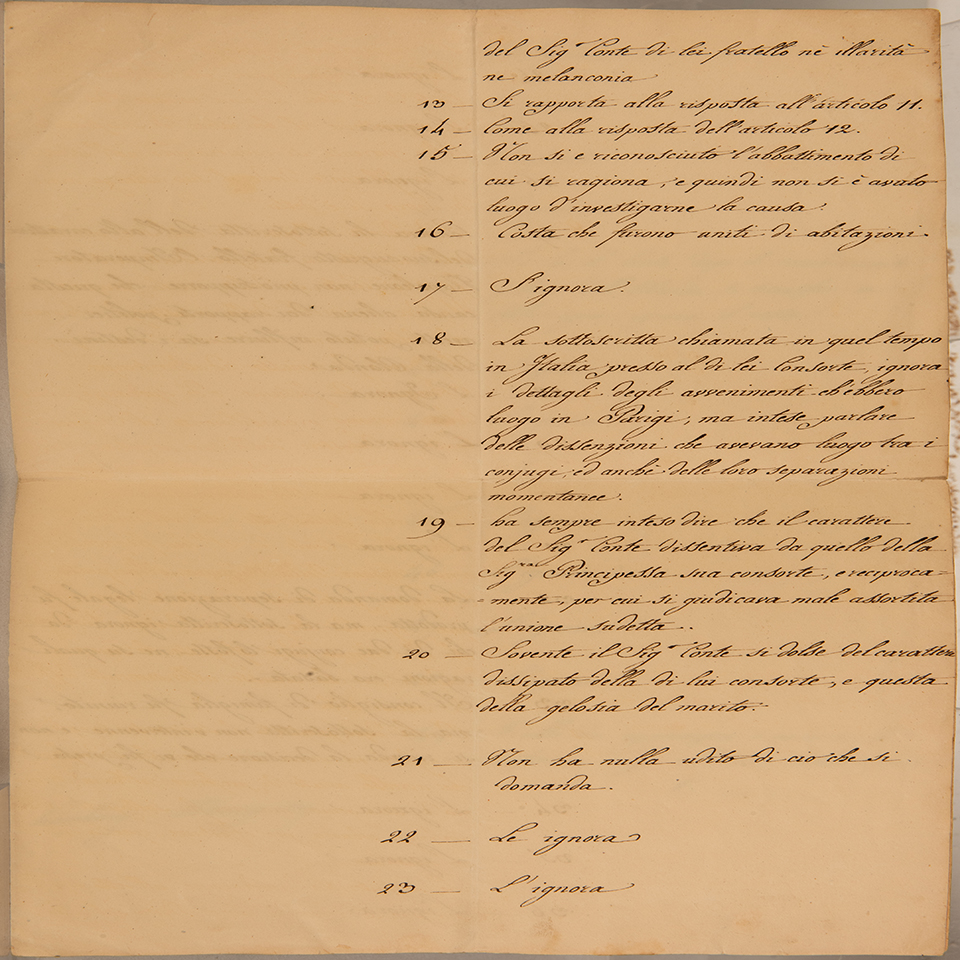 del Sig.r Conte di lei fratello nè illarità
ne melanconia
13 — Si rapporta alla risposta all'articolo 11.
14 — Come alla risposta dell'articolo 12.
15 — Non si e riconosciuto l'abbattimento di
cui si ragiona, e quindi non si è avuto
luogo d'investigarne la causa.
16 — Costa che furono uniti di abitazioni.
17 — L'ignora.
18 — La sottoscritta chiamata in quel tempo
in Italia presso al di lei Consorte, ignora
i dettagli degli avvenimenti ch'ebbero
luogo in Parigi, ma intese parlare
delle dissenzioni che avevano luogo tra i
conjugi, ed anche delle loro separazioni
momentanee.
19 — ha sempre inteso dire che il carattere
del Sig.r Conte dissentiva da quello della
Sig.ra Principessa sua consorte, e reciproca=
=mente, per cui si giudicava male assortita
l'unione sudetta.
20 — Sovente il Sig.r Conte si dolse del carattere
dissipato della di lui consorte, e questa
della gelosia del marito.
21 — Non ha nulla udito di cio che si
domanda.
22 — Le ignora
23 — L'ignora